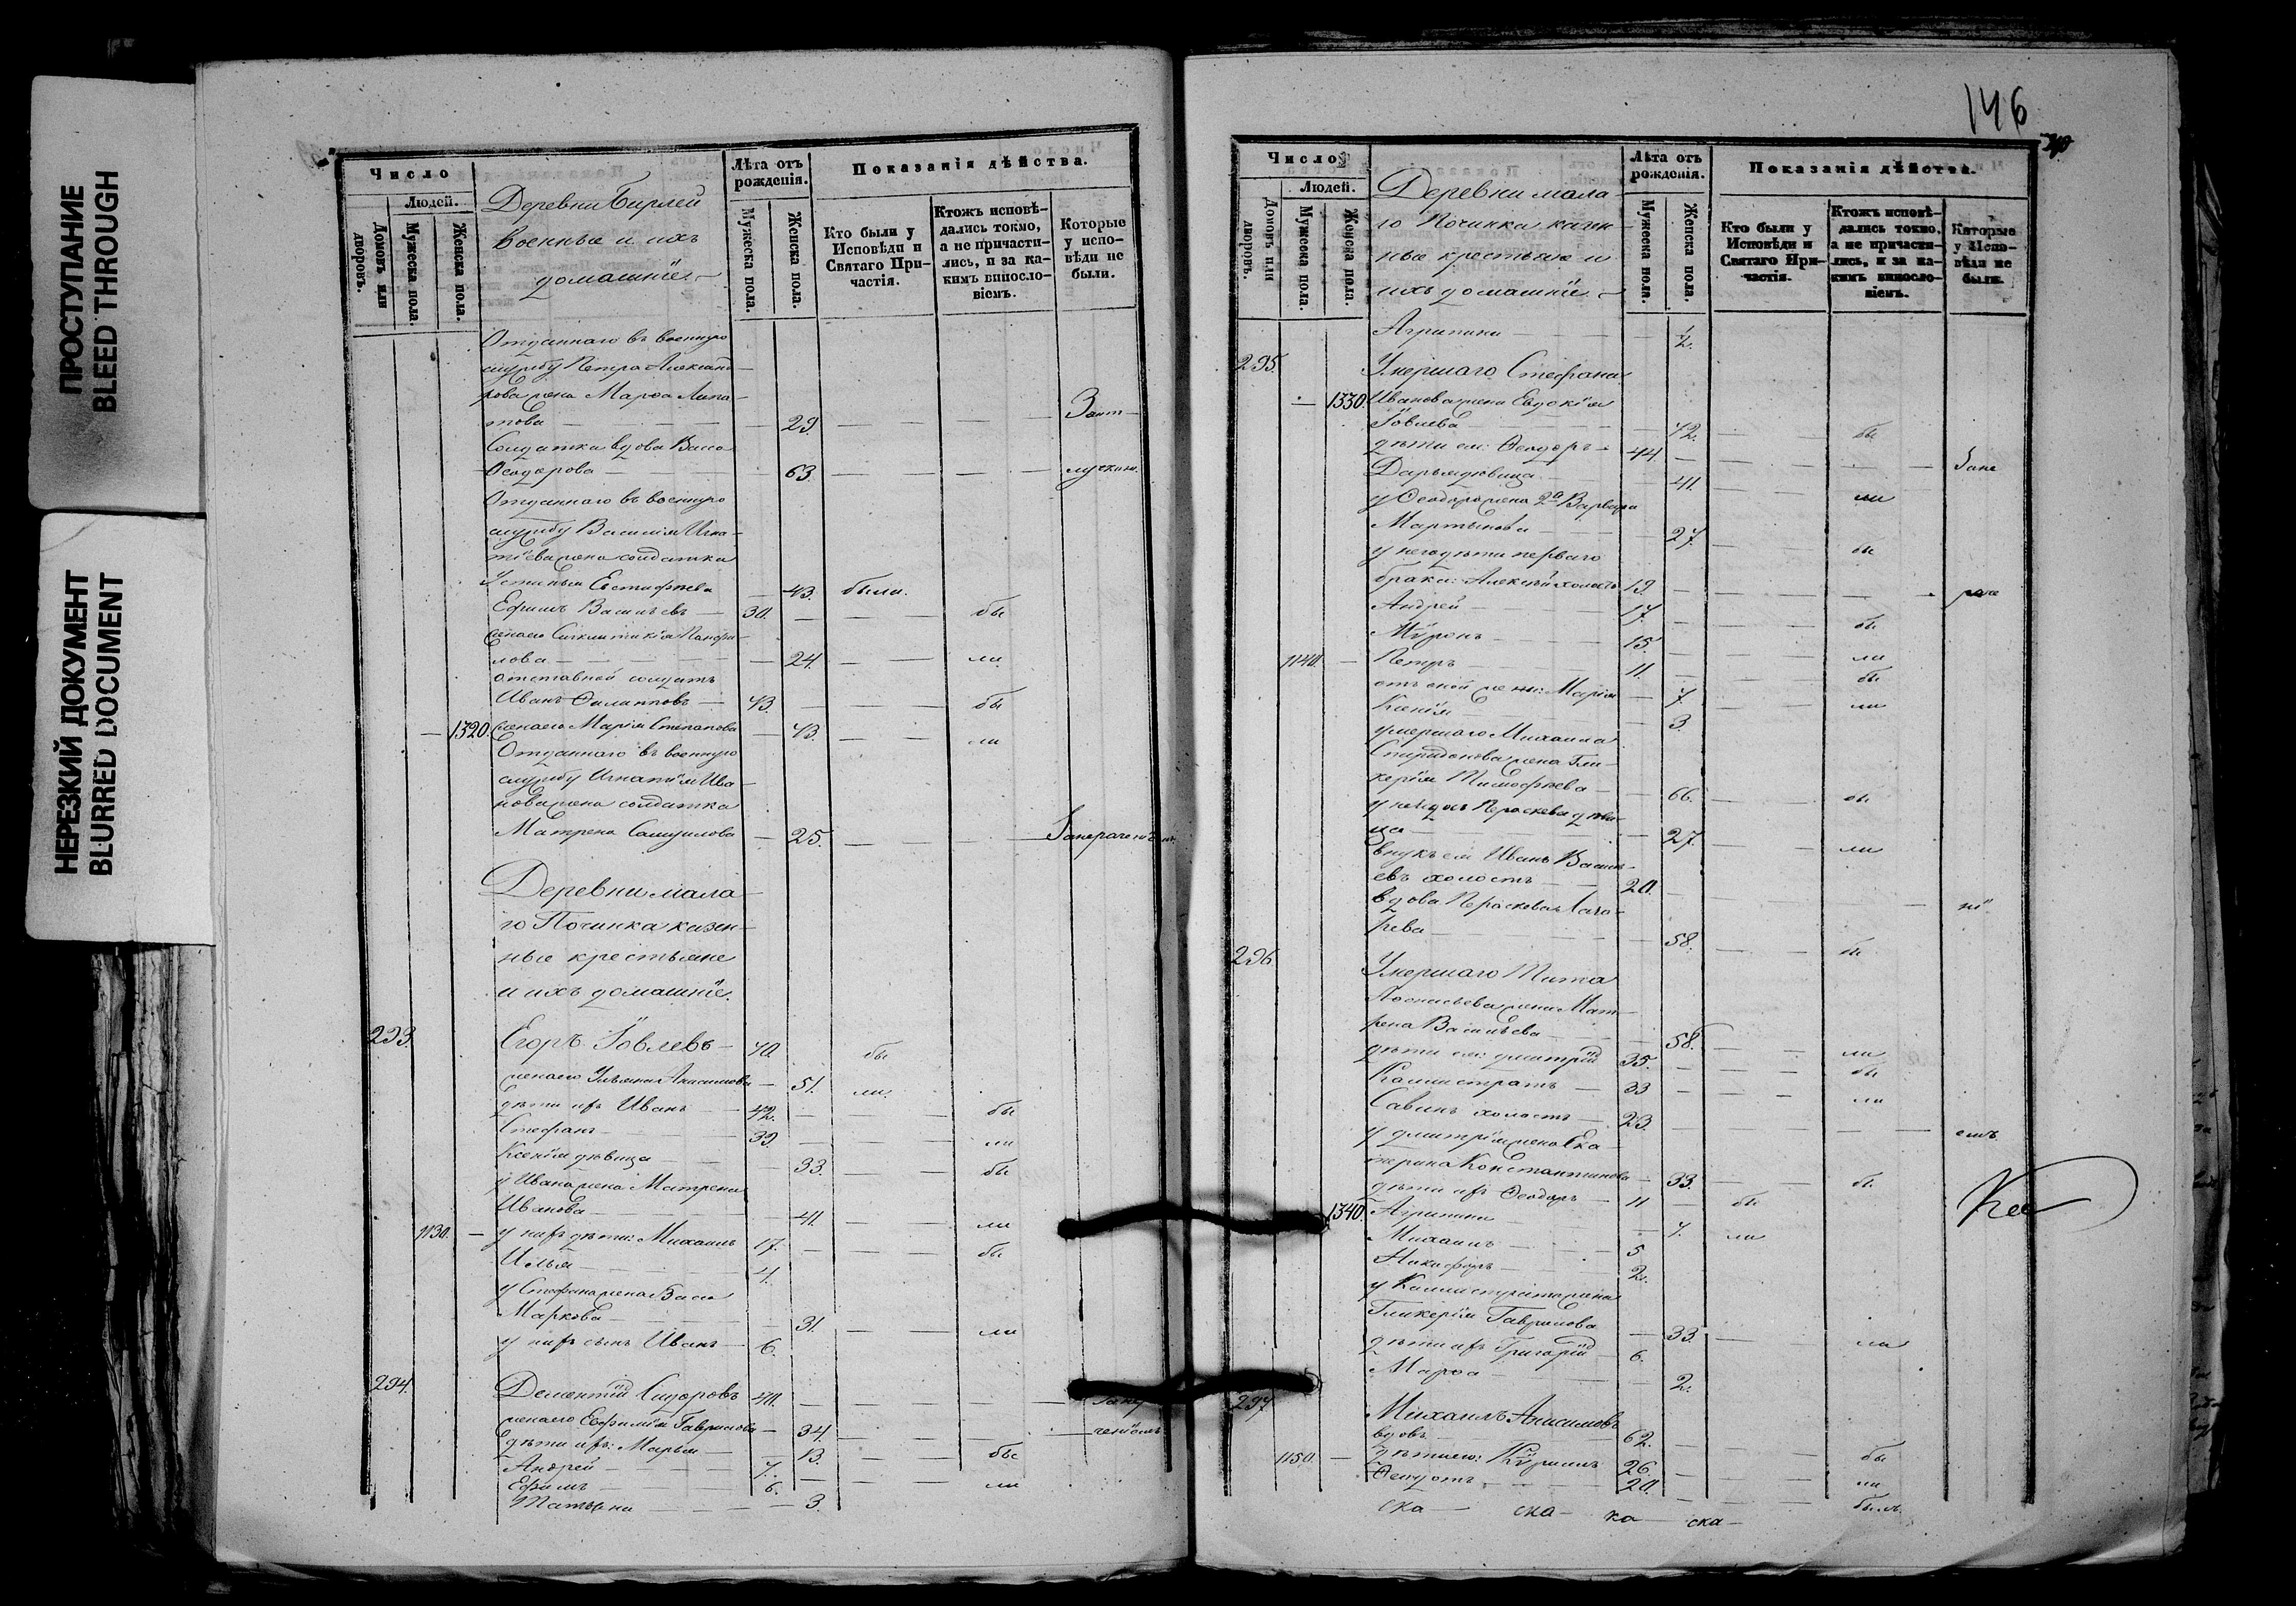 ПРОСТУПАНИЕ
BLEED THROUGH
НЕРЕЗКИЙ ДОКУМЕНТ
BLURRED DOCUMENT
Число
Людей.
Домовъ или дворовъ.
Мужеска пола.
Женска пола.
Деревни Бирлей
военные и ихъ
домашніе
Лѣта отъ рожденія.
Мужеска пола.
Женска пола.
Показанія дѣйства.
Кто были у Исповѣди и Святаго Причастія.
Ктожъ исповѣдались токмо, а не причастились, и за какимъ винословіемъ.
Которые у исповѣди не были.
Отданнаго въ военную
службу Петра Александ
рова жена Марѳа Липа
това 29. Зант
Солдатка вдова Васса
Ѳеодорова 63.
Отданнаго въ военную
службу Василія Игна
тіева жена солдатка
Устинья Евстифѣева 43. была.
Ефимъ Васильевъ 30. бы
жена его Синклитикія Панфи
лова 24. ли
отставной солдатъ
Иванъ Филипповъ 43. бы
1320. жена его Марія Степанова 43. ли
Отданнаго въ военную
службу Игнатія Ива
нова жена солдатка
Матрена Самуилова 25.
Деревни мала
го Починка казен
ные крестьяне
и ихъ домашніе.
293. Егоръ Іовлевъ 70. бы
жена его Ульяна Анисимова 51. ли.
дѣти ихъ Иванъ 42. бы
Стефанъ 39. ли
Ксенія дѣвица 33. бы
у Ивана жена Матрена
Иванова 41. ли
1130. у нихъ дѣти: Михаилъ 17. бы
Илья 4.
у Стефана жена Васса
Маркова 31. ли
у нихъ сынъ Иванъ 6.
294. Дементій Сидоровъ 40.
жена его Евфимія Гаврилова 34.
дѣти ихъ: Марья 13. бы
Андрей 7. ли
Ефимъ 6.
Татьяна 3.
146
Число
Людей.
Домовъ или дворовъ.
Мужеска пола.
Женска пола.
Деревни мала
го Починка казен
ные крестьяне и
ихъ домашніе
Лѣта отъ рожденія.
Мужеска пола.
Женска пола.
Показанія дѣйства.
Кто были у Исповѣди и Святаго Причастія.
Ктожъ исповѣдались токмо, а не причастились, и за какимъ винословіемъ.
Которые у исповѣди не были.
Агрипина ½.
295. Умершаго Стефана
1330. Иванова жена Евдокія
Іовлева 72. бы
дѣти ея: Ѳеодоръ 44. Зане
Дарья дѣвица 41. ли
у Ѳеодора жена 2а Варвара
Мартынова 27. бы
у него дѣти перваго
брака: Алексѣй холостъ 19.
Андрей 17. бы
Мѵронъ 15. ли
1140. Петръ 11. бы
отъ сей жены: Марія 7. ли
Ксенія 3.
умершаго Михаила
Спиридонова жена Гли
керія Тимофѣева 66. бы
у ней дочь Параскева дѣви
ца 27. ли
внукъ ея Иванъ Василь
евъ холостъ 20. ні
вдова Параскева Заха
рева 58. бы
296. Умершаго Тита
Аѳонасьева жена Мат
рена Васильева 58. ли
дѣти ея: Дмитрій 35. бы
Каллистратъ 33 ли
Савинъ холостъ 23. емъ
у Дмитрія жена Ека
терина Константинова 33. бы
дѣти ихъ Ѳеодоръ 11 бы
1340. Агрипина 7. ли
Михаилъ 5
Никифоръ 2.
у Каллистрата жена
Гликерія Гаврилова 33. ли
дѣти ихъ Григорій 6.
Марѳа 2.
297 Михаилъ Анисимовъ
вдовъ 62. бы
1150. дѣти его: Кѵриллъ 26. ли
Ѳедотъ 20. былъ.
ска ска ка ска